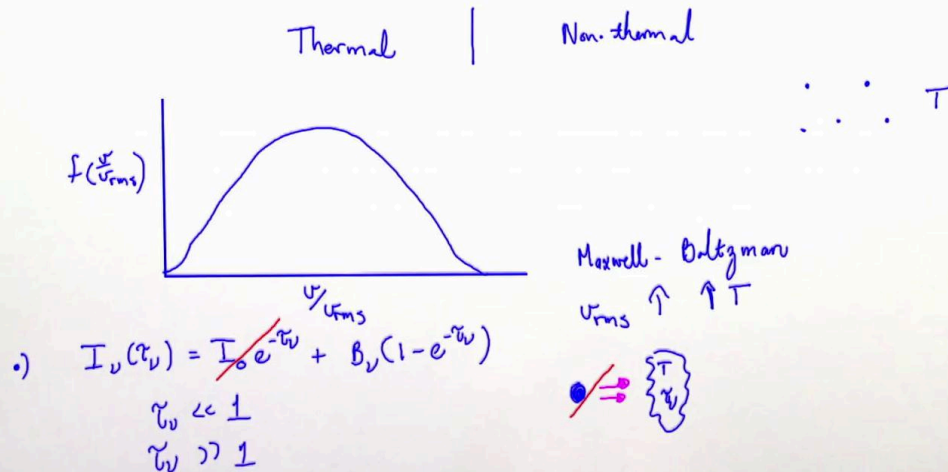 Thermal | Non-thermal
T
f(v/vrms)
v/vrms
Maxwell - Boltzman
vrms ↑ ↑ T
•) Iν(τν) = I₀e^-τν + Bν(1-e^-τν)
T
τν
τν << 1
τν >> 1